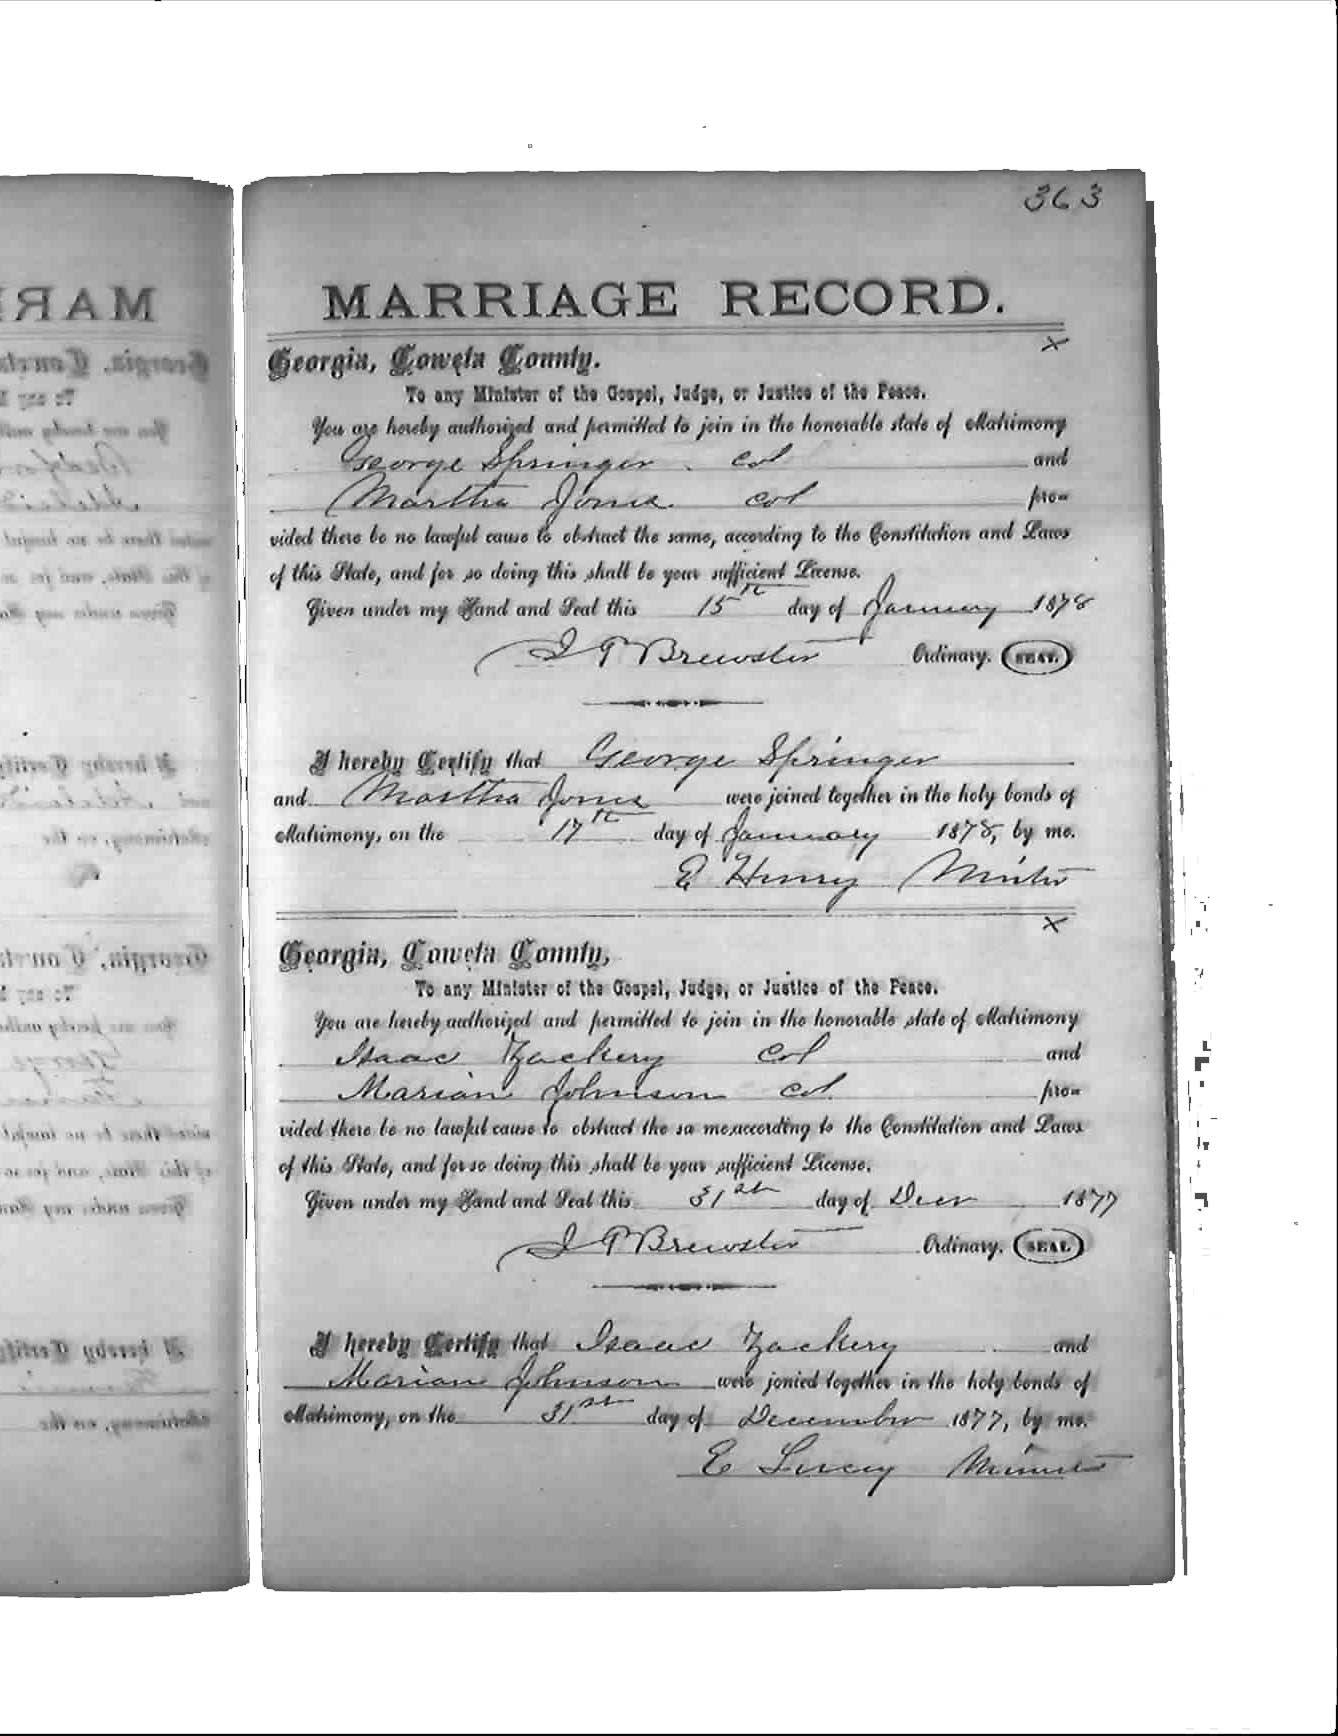 363
MARRIAGE RECORD.
Georgia, Coweta County.
To any Minister of the Gospel, Judge, or Justice of the Peace.
You are hereby authorized and permitted to join in the honorable state of Matrimony
George Springer col and
Martha Jones col pro-
vided there be no lawful cause to obstruct the same, according to the Constitution and Laws
of this State, and for so doing this shall be your sufficient License.
Given under my Hand and Seal this 15th day of January 1878
J P Brewster Ordinary. SEAL.
I hereby Certify that George Springer
and Martha Jones were joined together in the holy bonds of
Matrimony, on the 17th day of January 1878, by me.
E Henry
Georgia, Coweta County,
To any Minister of the Gospel, Judge, or Justice of the Peace.
You are hereby authorized and permitted to join in the honorable state of Matrimony
Isaac Zackery Col and
Marian Johnson col pro-
vided there be no lawful cause to obstruct the sa me,according to the Constitution and Laws
of this State, and for so doing this shall be your sufficient License.
Given under my Hand and Seal this 31st day of Decr 1877
J P Brewster Ordinary. SEAL
I hereby Certify that Isaac Zackery and
Marian Johnson were jonied together in the holy bonds of
Matrimony, on the 31st day of December 1877, by me.
E Lucey